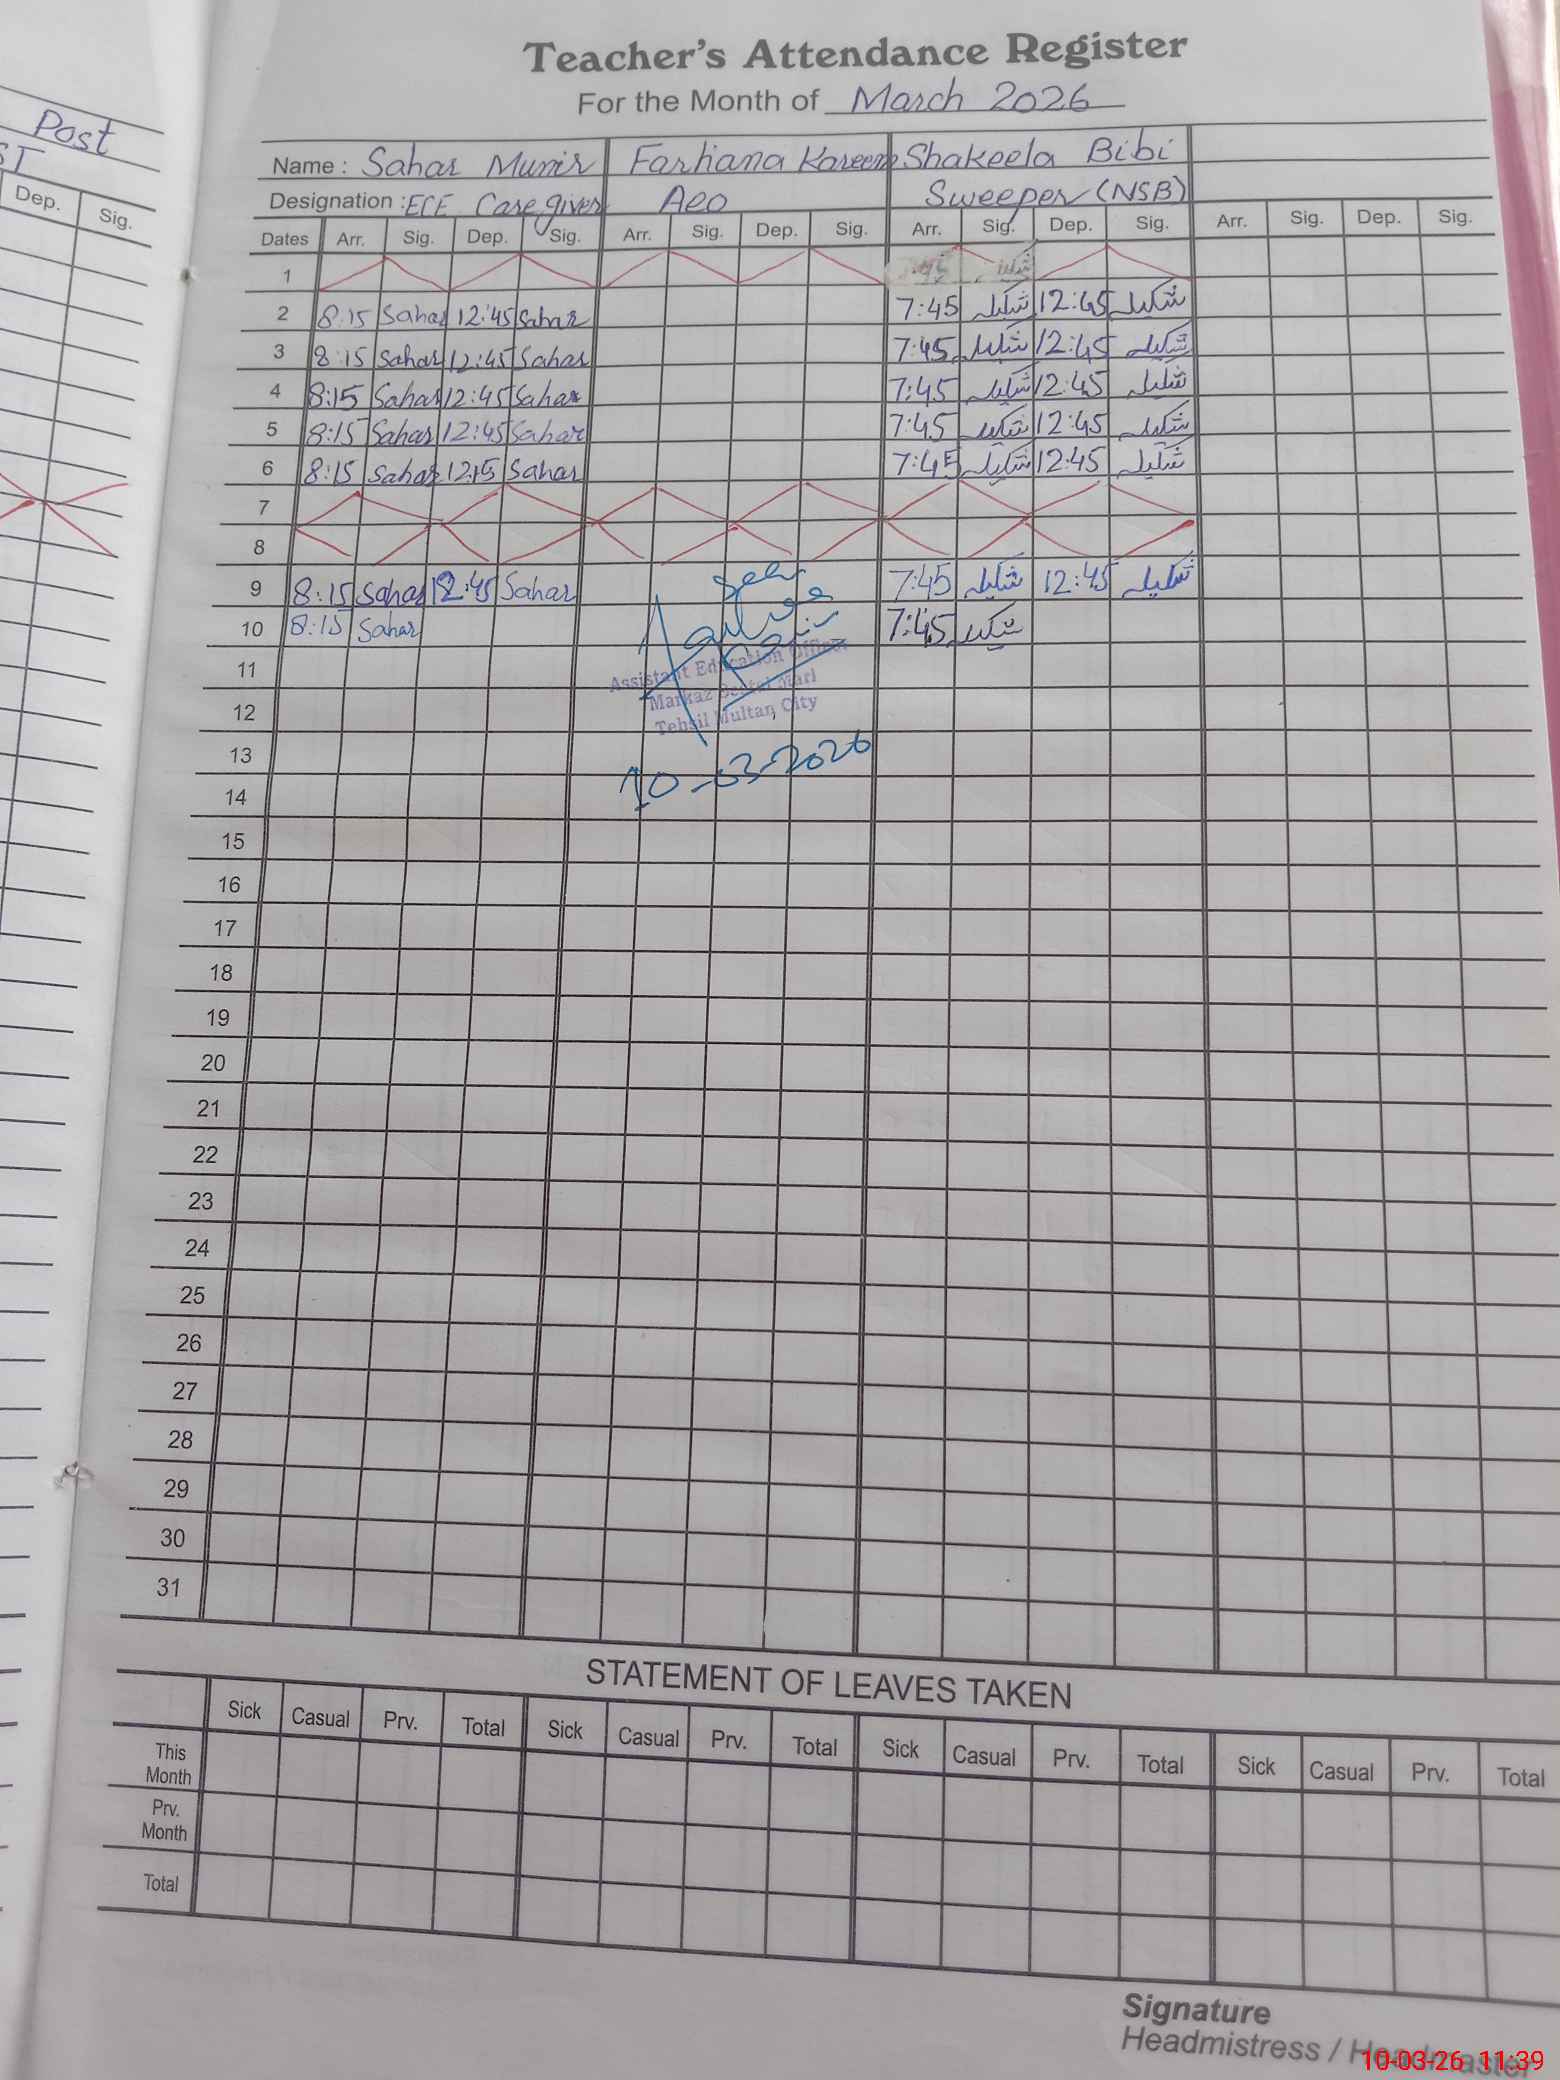 Post
ST
Dep. Sig.
Teacher's Attendance Register
For the Month of March 2026
Name : Sahar Munir Farhana Kareem Shakeela Bibi
Designation : ECE Care giver Aeo Sweeper (NSB)
Dates Arr. Sig. Dep. Sig. Arr. Sig. Dep. Sig. Arr. Sig. Dep. Sig. Arr. Sig. Dep. Sig.
1
2 8:15 Sahar 12:45 Sahar 7:45 شکیلہ 12:45 شکیلہ
3 8:15 Sahar 12:45 Sahar 7:45 شکیلہ 12:45 شکیلہ
4 8:15 Sahar 12:45 Sahar 7:45 شکیلہ 12:45 شکیلہ
5 8:15 Sahar 12:45 Sahar 7:45 شکیلہ 12:45 شکیلہ
6 8:15 Sahar 12:15 Sahar 7:45 شکیلہ 12:45 شکیلہ
7
8
9 8:15 Sahar 12:45 Sahar Seen 7:45 شکیلہ 12:45 شکیلہ
10 8:15 Sahar 7:45 شکیلہ
11 Assistant Education Officer
Markaz
12 Tehsil Multan City
13 10-03-2026
14
15
16
17
18
19
20
21
22
23
24
25
26
27
28
29
30
31
STATEMENT OF LEAVES TAKEN
Sick Casual Prv. Total Sick Casual Prv. Total Sick Casual Prv. Total Sick Casual Prv. Total
This
Month
Prv.
Month
Total
Signature
Headmistress / Headmaster
10-03-26 11:39